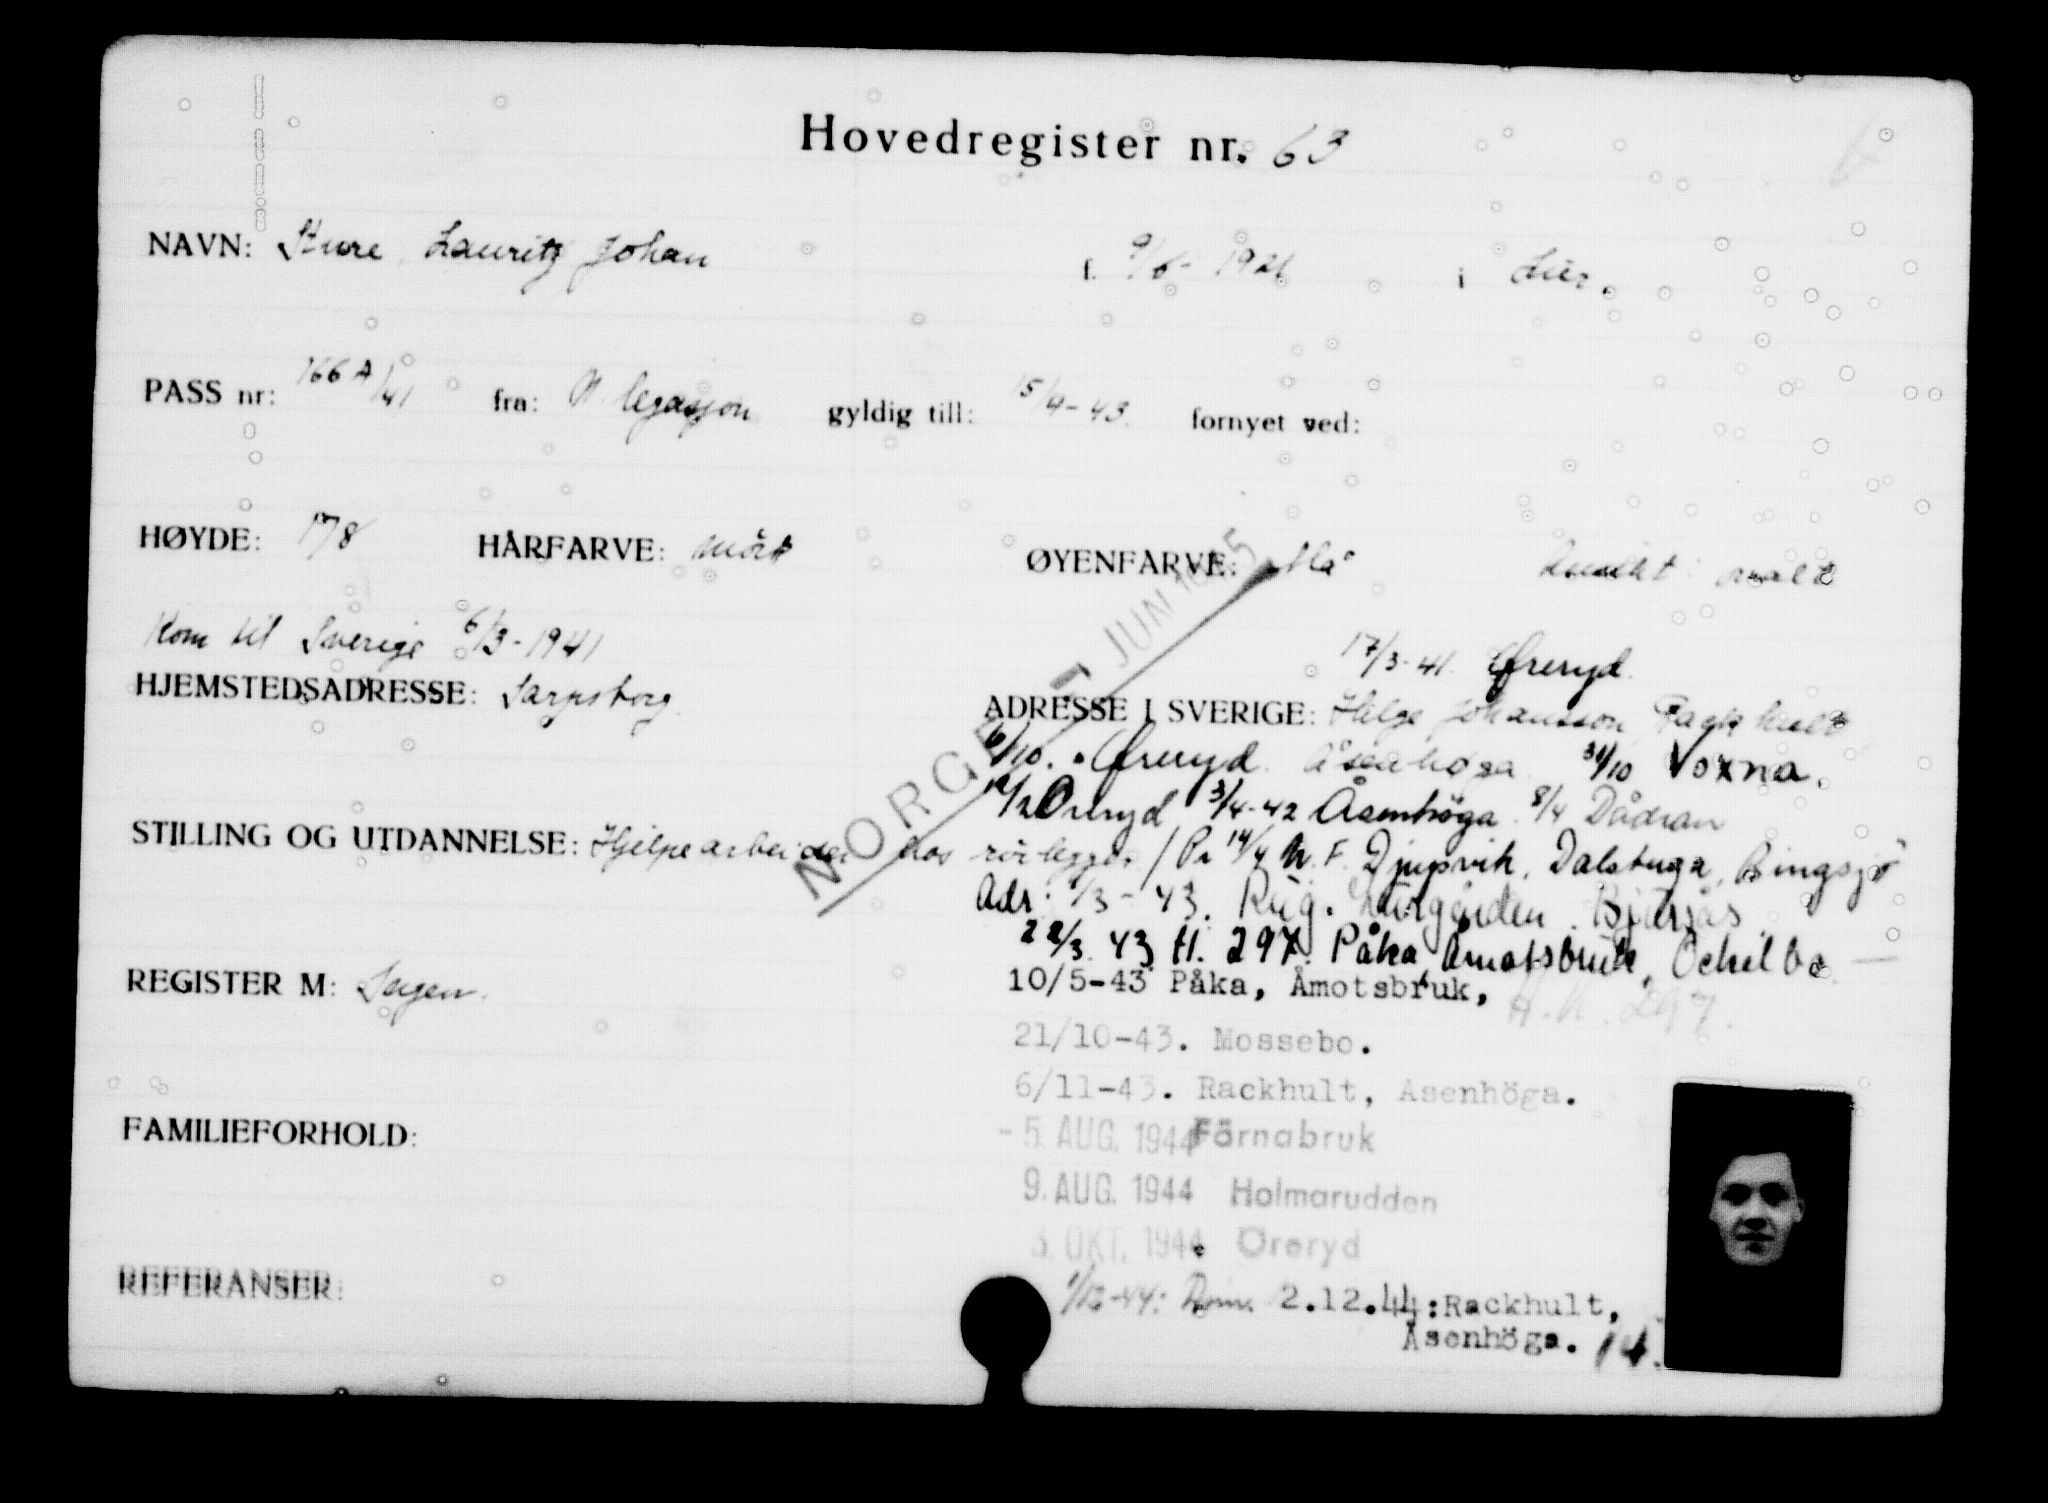 Hovedregister nr. 63
NAVN: Sture, Lauritz Johan f. 9/6- 1921 i Lier.
PASS nr: 166 A/41 fra: N. legasjon gyldig till: 15/4-43. fornyet ved:
HØYDE: 178 HÅRFARVE: mörk ØYENFARVE: blå Ansikt: ovalt
7 JUN 1945
NORGE
Kom til Sverige 6/3-1941
17/3-41. Øreryd.
HJEMSTEDSADRESSE: Sarpsborg. ADRESSE I SVERIGE: Helge Johansson Rackhult
6/10. Øreryd. Åsenhöga 31/10 Voxna.
Öreryd 3/4-42 Åsenhöga. 8/4 Dådran
STILLING OG UTDANNELSE: Hjelpearbeider hos rörlegger / Pr 14/4 N.F. Djupvik, Dalstuga, Bingsjö
Adr: 1/3-43. Bjursås
22/3. 43 H. 297. Påka Åmotsbruk, Ockelbo —
REGISTER M: Ingen.
10/5-43 Påka, Åmotsbruk, H.K. 297.
21/10-43. Mossebo.
6/11-43. Rackhult, Åsenhöga.
FAMILIEFORHOLD:
- 5. AUG. 1944 Förnabruk
9. AUG. 1944 Holmarudden
3. OKT. 1944. Öreryd
REFERANSER:
1/12-44: 2.12.44:Rackhult,
Åsenhöga. 14.